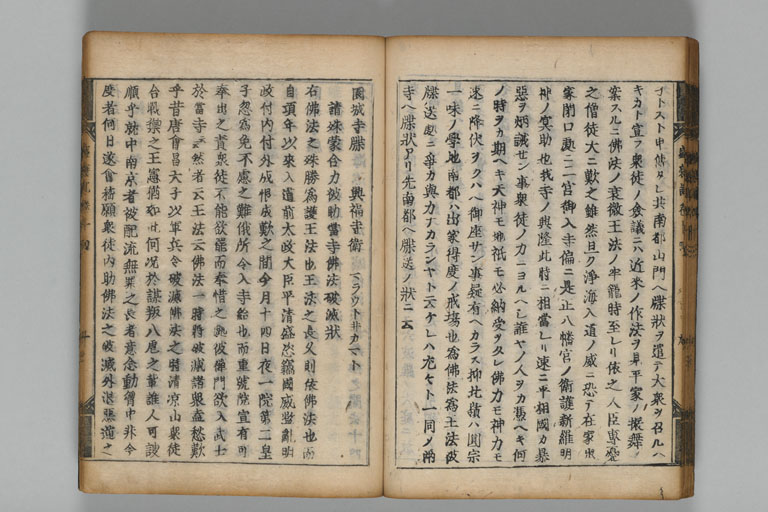 キカト宣フ衆徒ノ僉議ニハ近来ノ作法ヲ見平家ノ振舞ヲ
案スルニ佛法ノ衰微王法ノ牢籠時至レリ依之人臣專愁
之僧徒大ニ歎之雖然旦ク淨海入道ノ威ニ恐テ在家出
家閉口二宮御入寺偏ニ是正八幡宮ノ衛護新羅明
神ノ冥助也我寺ノ興隆此時ニ相當レリ速ニ平相國カ暴
惡ヲ炳誡セン事衆徒ノ力ニヨルヘシ誰ヤノ人ヲカ憑ヘキ何
ノ時ヲカ期ヘキ天神モ地祇モ必納受ヲタレ佛力モ神力モ
速ニ降伏ヲクハヘ御座サン事疑有ヘカラス抑北嶺ハ圓宗
一味ノ學地南都ハ出家得度ノ戒場也爲佛法爲王法
牒送爭カ與力ナカランヤト云ケレハ尤々ト一同ノ兩
寺ヘ牒狀アリ先南都ヘ牒送ノ狀ニ云
園城寺牒 興福寺衙
請殊蒙合力被助當寺佛法破滅狀
右佛法之殊勝爲護王法也王法之長久則依佛法也而
自頃年以來入道前太政大臣平清盛恣竊國威監亂朝
政付内付外成恨成歎之間今月十四日夜一院第二皇
子忽爲免不慮之難俄所令入寺給也而重號院宣有可
奉出之責衆徒不能欲罷而奉惜之彼禪門欲入武士
於當寺云然者云王法云佛法一時將破滅諸衆盍愁歎
乎昔唐會昌天子以軍兵令破滅佛法之時清凉山衆徒
合戰禦之王憲猶如此何况於謀叛八虐之輩誰人可諛
順乎就中南京者被配流無罪之長者意念動胷中非今
度者何日遂會稽願衆徒内助佛法之破滅外退惡逆之